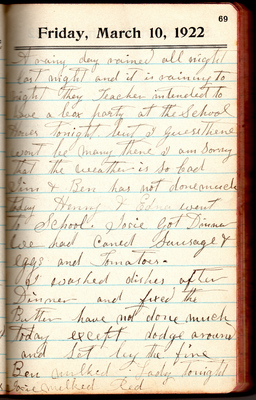 69
Friday, March 10, 1922
A rainy day rained all night
last night and it is raining to
night they Teacher intended to
have a box party at the School
House tonight but I guess there
wont be many there I am Sorry
that the weather is so bad
Jim & Ben has not done much
today Henry & Edna went
to School. Josie Got Dinner
We had Caned Sausage &
eggs and Tomatoes.
I washed dishes after
Dinner and fixed the
Butter have not done much
today except dodge around
and Set by the fire
Ben milked Lady tonight
Josie milked Red